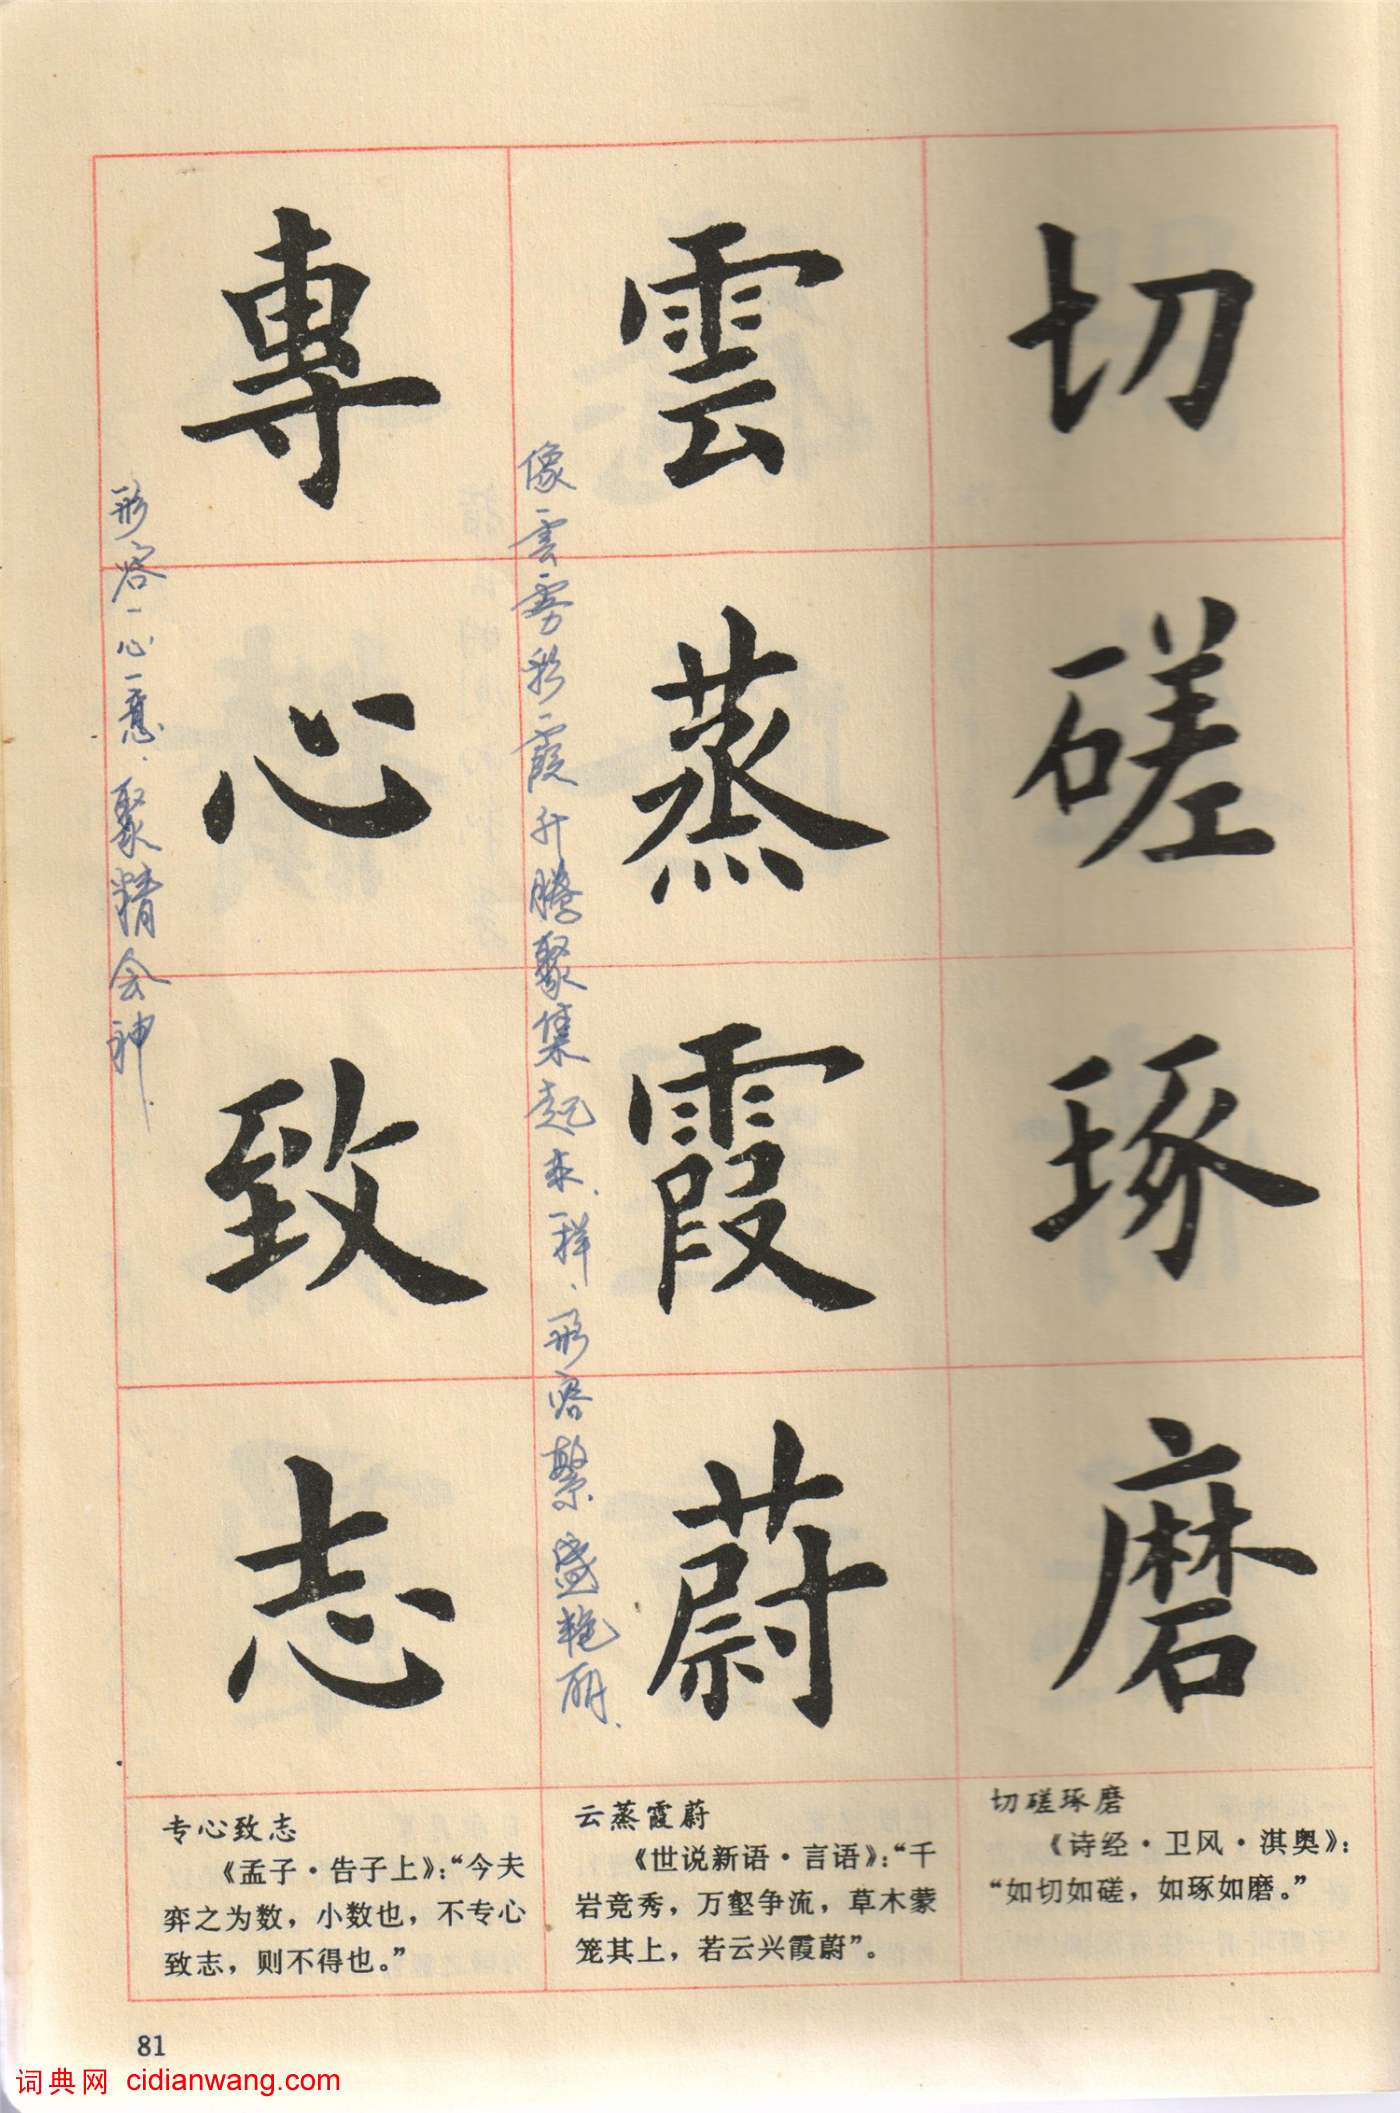 切磋琢磨
雲蒸霞蔚
專心致志
像雲雾彩霞升腾聚集起来一样、形容繁盛艳丽、
形容一心一意、聚精会神、
切磋琢磨
《诗经·卫风·淇奥》：
“如切如磋，如琢如磨。”
云蒸霞蔚
《世说新语·言语》：“千
岩竞秀，万壑争流，草木蒙
笼其上，若云兴霞蔚”。
专心致志
《孟子·告子上》：“今夫
弈之为数，小数也，不专心
致志，则不得也。”
81
词典网 cidianwang.com